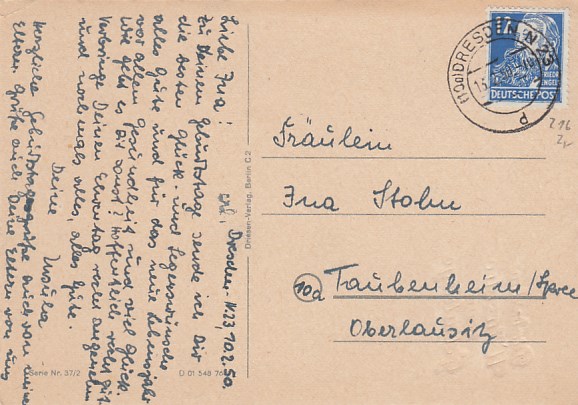 Dresden N.23, 10.2.50.
Liebe Ina!
Zu Deinem Geburtstage sende ich Dir
die besten Glück- und Segenswünsche
alles Gute und für das neue Lebensjahr
vor allem Gesundheit und viel Glück.
Wie geht es Dir sonst? Hoffentlich recht gut.
Verbringe Deinen Ehrentag recht angenehm
und nochmals alles, alles Gute.
Deine
Herzliche Geburtstagsgrüße auch von meinen
Eltern. Grüße auch Deine Eltern von uns
Serie Nr. 37/2
D 01 548 76
Driesen-Verlag, Berlin C 2
(10a) DRESDEN N 23
d
DEUTSCHE POST
216
Fräulein
Ina Stolm
10a Taubenheim/Spree
Oberlausitz